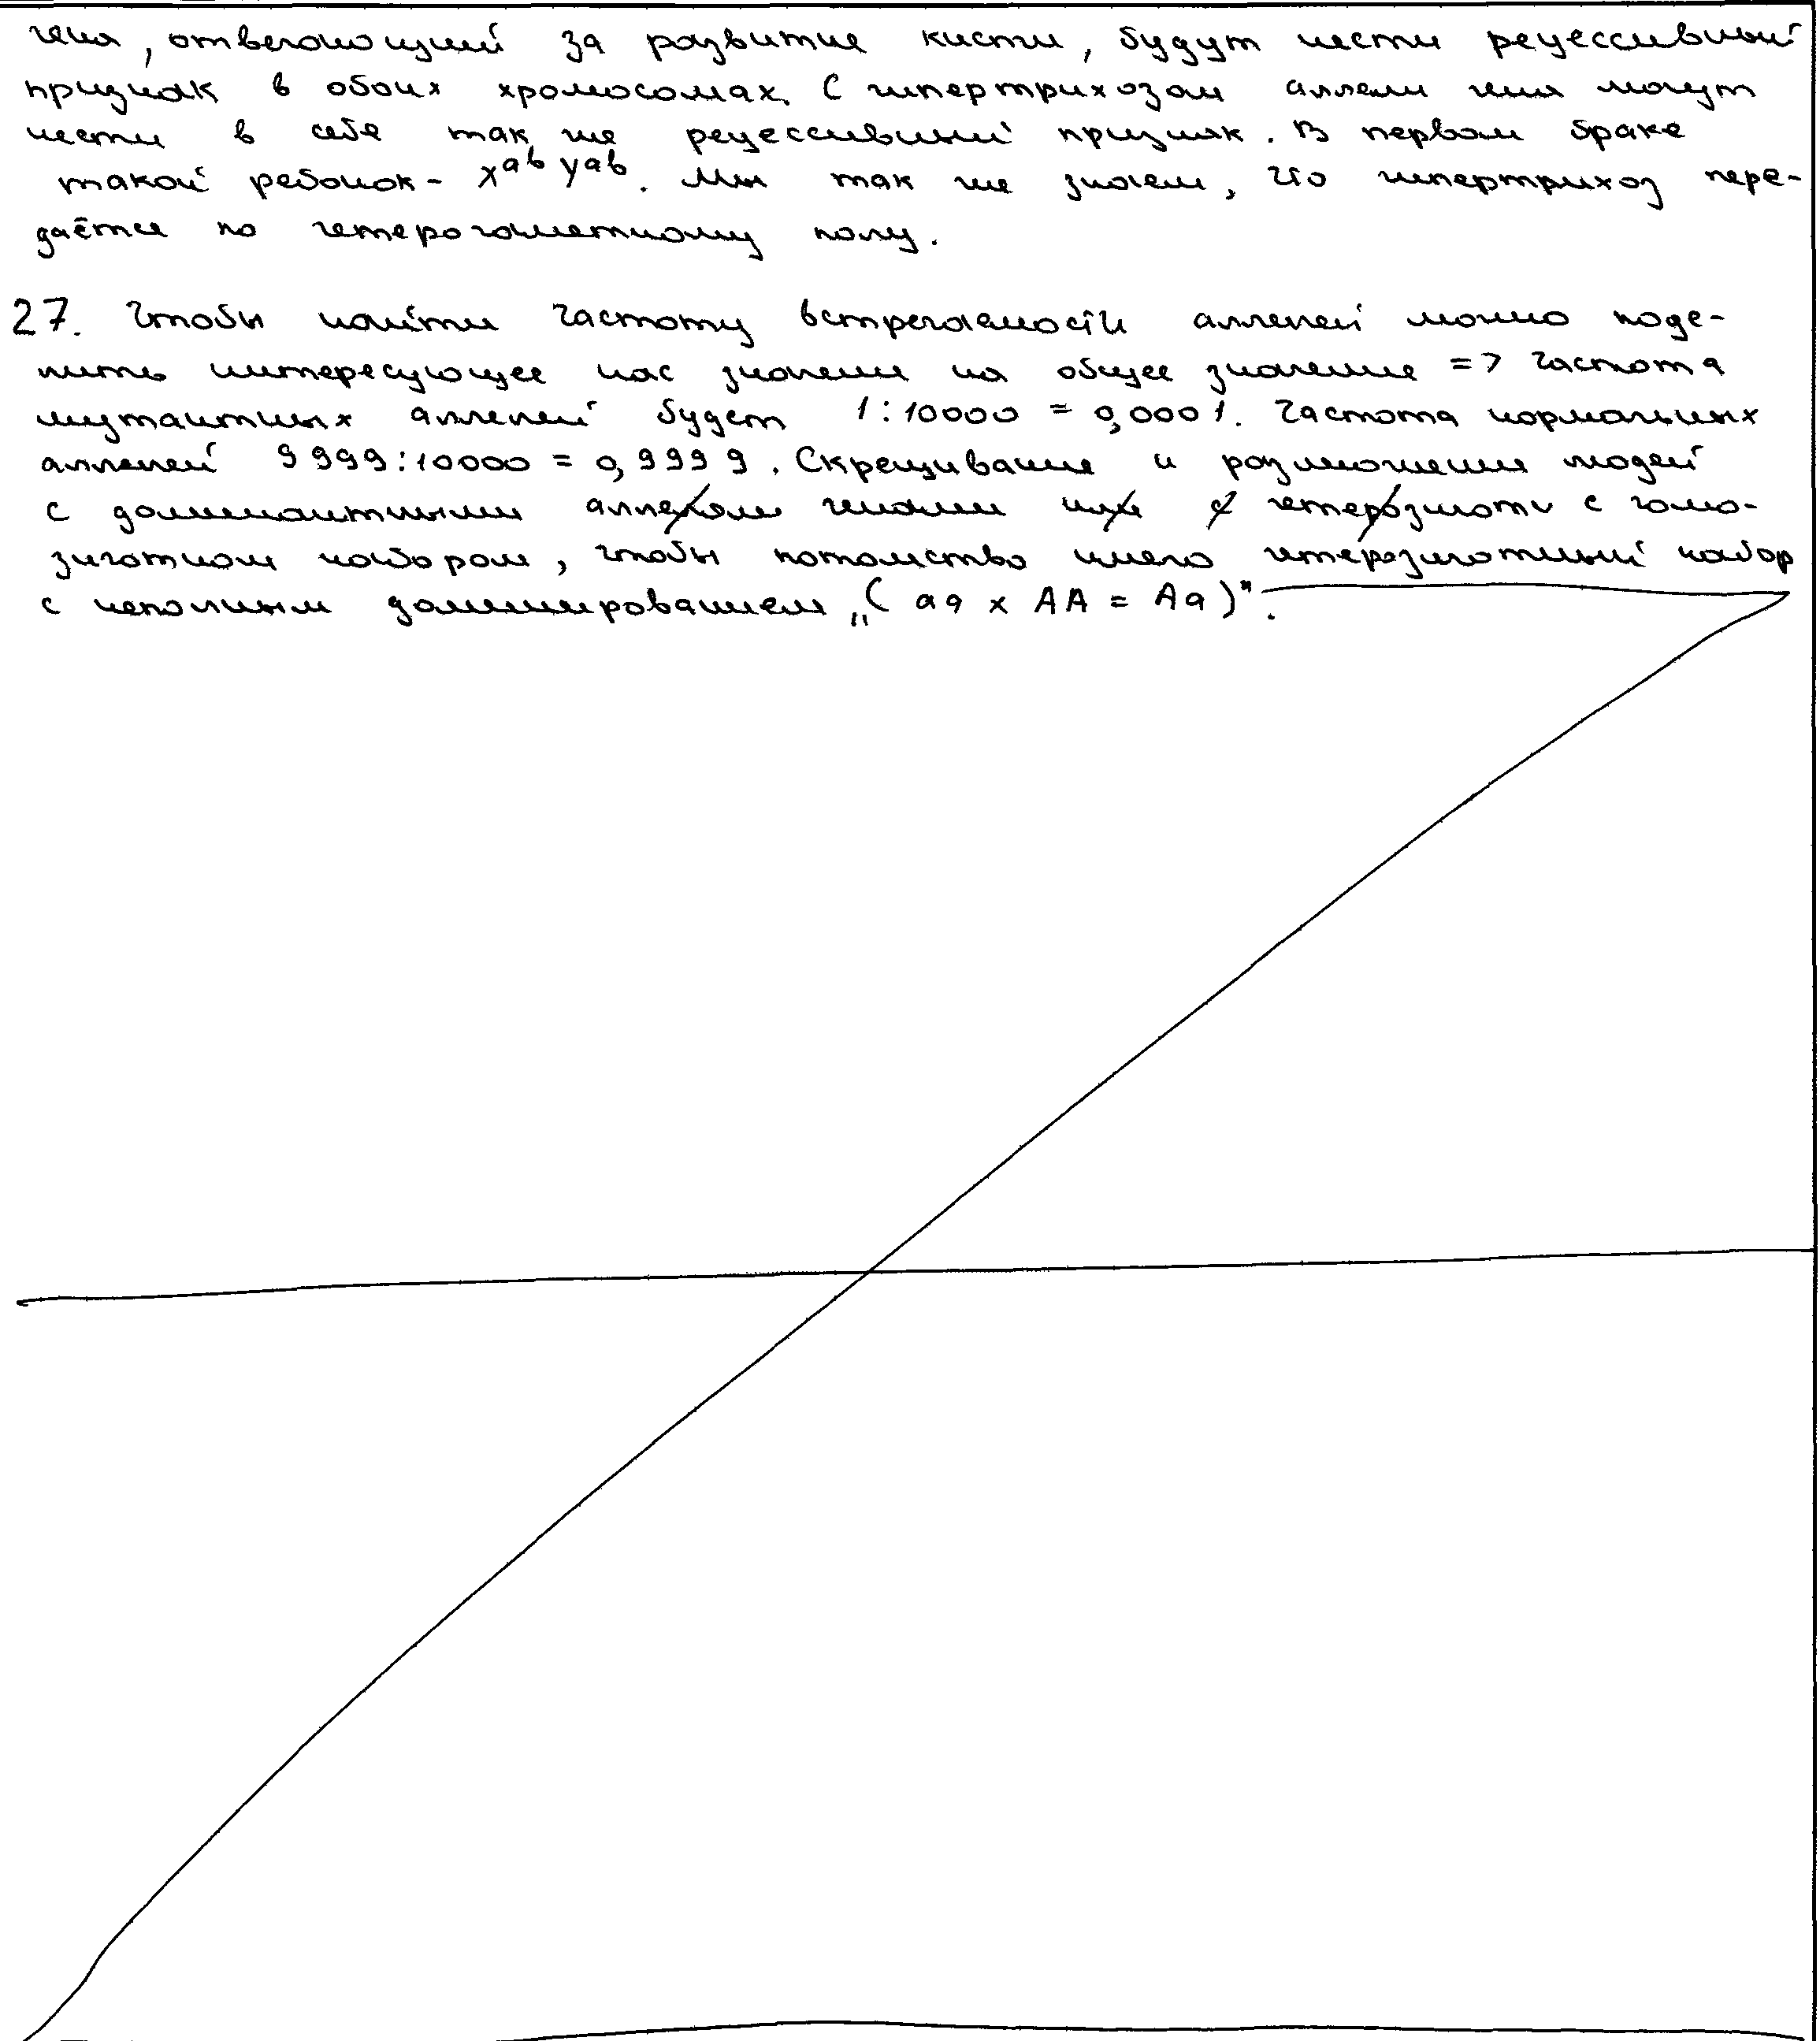 гена, отвечающий за развитие кисти, будут нести рецессивный
признак в обоих хромосомах. С гипертрихозом аллели гена могут
нести в себе так же рецессивный признак. В первом браке
такой ребёнок - X^ab Y^ab. Мы так же знаем, что гипертрихоз пере-
даётся по гетерогаметному полу.
27. Чтобы найти частоту встречаемости аллелей можно поде-
лить интересующее нас значение на общее значение => частота
мутантных аллелей будет 1:10000 = 0,0001. Частота нормальных
аллелей 9999:10000 = 0,9999. Скрещивание и размножение людей
с доминантными генами с гомо-
зиготном набором, чтобы потомство имело гетерозиготный набор
с неполным доминированием „( aa x AA = Aa )".